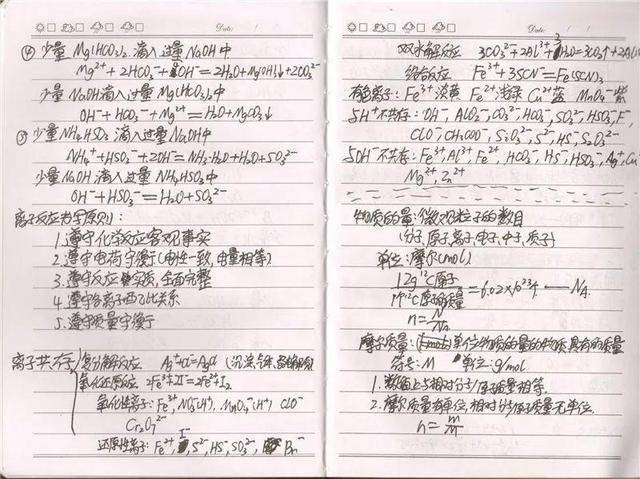 ④ 少量 Mg(HCO₃)₂ 滴入过量 NaOH 中
Mg²⁺ + 2HCO₃⁻ + OH⁻ = 2H₂O + Mg(OH)₂↓ + 2CO₃²⁻
少量 NaOH 滴入过量 Mg(HCO₃)₂ 中
OH⁻ + HCO₃⁻ + Mg²⁺ = H₂O + MgCO₃↓
⑤ 少量 NH₄HSO₃ 滴入过量 NaOH 中
NH₄⁺ + HSO₃⁻ + 2OH⁻ = NH₃·H₂O + H₂O + SO₃²⁻
少量 NaOH 滴入过量 NH₄HSO₃ 中
OH⁻ + HSO₃⁻ = H₂O + SO₃²⁻
离子反应方程原则:
1. 遵守化学反应客观事实
2. 遵守电荷守衡(电性一致,电量相等)
3. 遵守反应实质,全面完整
4. 遵守各离子配比关系
5. 遵守质量守衡
离子共存 复分解反应 Ag⁺ + Cl⁻ = AgCl
氧化还原反应 2Fe³⁺ + 2I⁻ = 2Fe²⁺ + I₂
氧化性离子: Fe³⁺, NO₃⁻(H⁺), MnO₄⁻(H⁺) ClO⁻
Cr₂O₇²⁻
还原性离子: Fe²⁺, I⁻, S²⁻, HS⁻, SO₃²⁻, Br⁻
Date: / /
双水解反应 3CO₃²⁻ + 2Al³⁺ + 3H₂O = 3CO₂↑ + 2Al
络合反应 Fe³⁺ + 3SCN⁻ = Fe(SCN)₃
有色离子: Fe³⁺ 淡黄 Fe²⁺ 浅绿 Cu²⁺ 蓝 MnO₄⁻ 紫
与H⁺不共存: OH⁻, AlO₂⁻, CO₃²⁻, HCO₃⁻, SO₃²⁻, HSO₃⁻, F⁻
ClO⁻, CH₃COO⁻, S₂O₃²⁻, S²⁻, HS⁻, S₂O₃²⁻
与OH⁻不共存: Fe³⁺, Al³⁺, Fe²⁺, HCO₃⁻, HS⁻, HSO₃⁻, Ag⁺, Cu
Mg²⁺, Zn²⁺
物质的量: 微观粒子的数目
(分子,原子,离子,电子,中子,质子)
单位: 摩尔(mol)
12g ¹²C原子
1个¹²C原子质量 = 6.02×10²³个 ← NA
n = N/NA
摩尔质量: 单位物质的量的物质具有的质量
符号: M 单位: g/mol
1. 数值上与相对分子/原子质量相等.
2. 摩尔质量有单位, 相对分子/原子质量无单位.
n = m/M